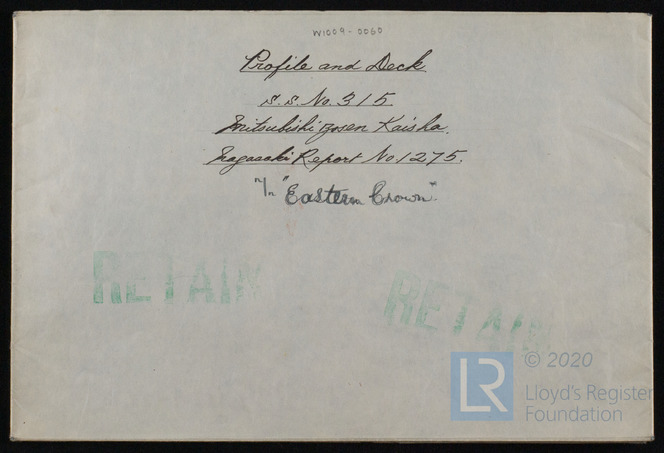 W1009-0060
Profile and Deck
S.S. No. 315.
Mitsubishi Zosen Kaisha.
Nagasaki Report No 1275.
n/n "Eastern Crown".
RETAIN
RETAIN
LR
© 2020
Lloyd's Register
Foundation